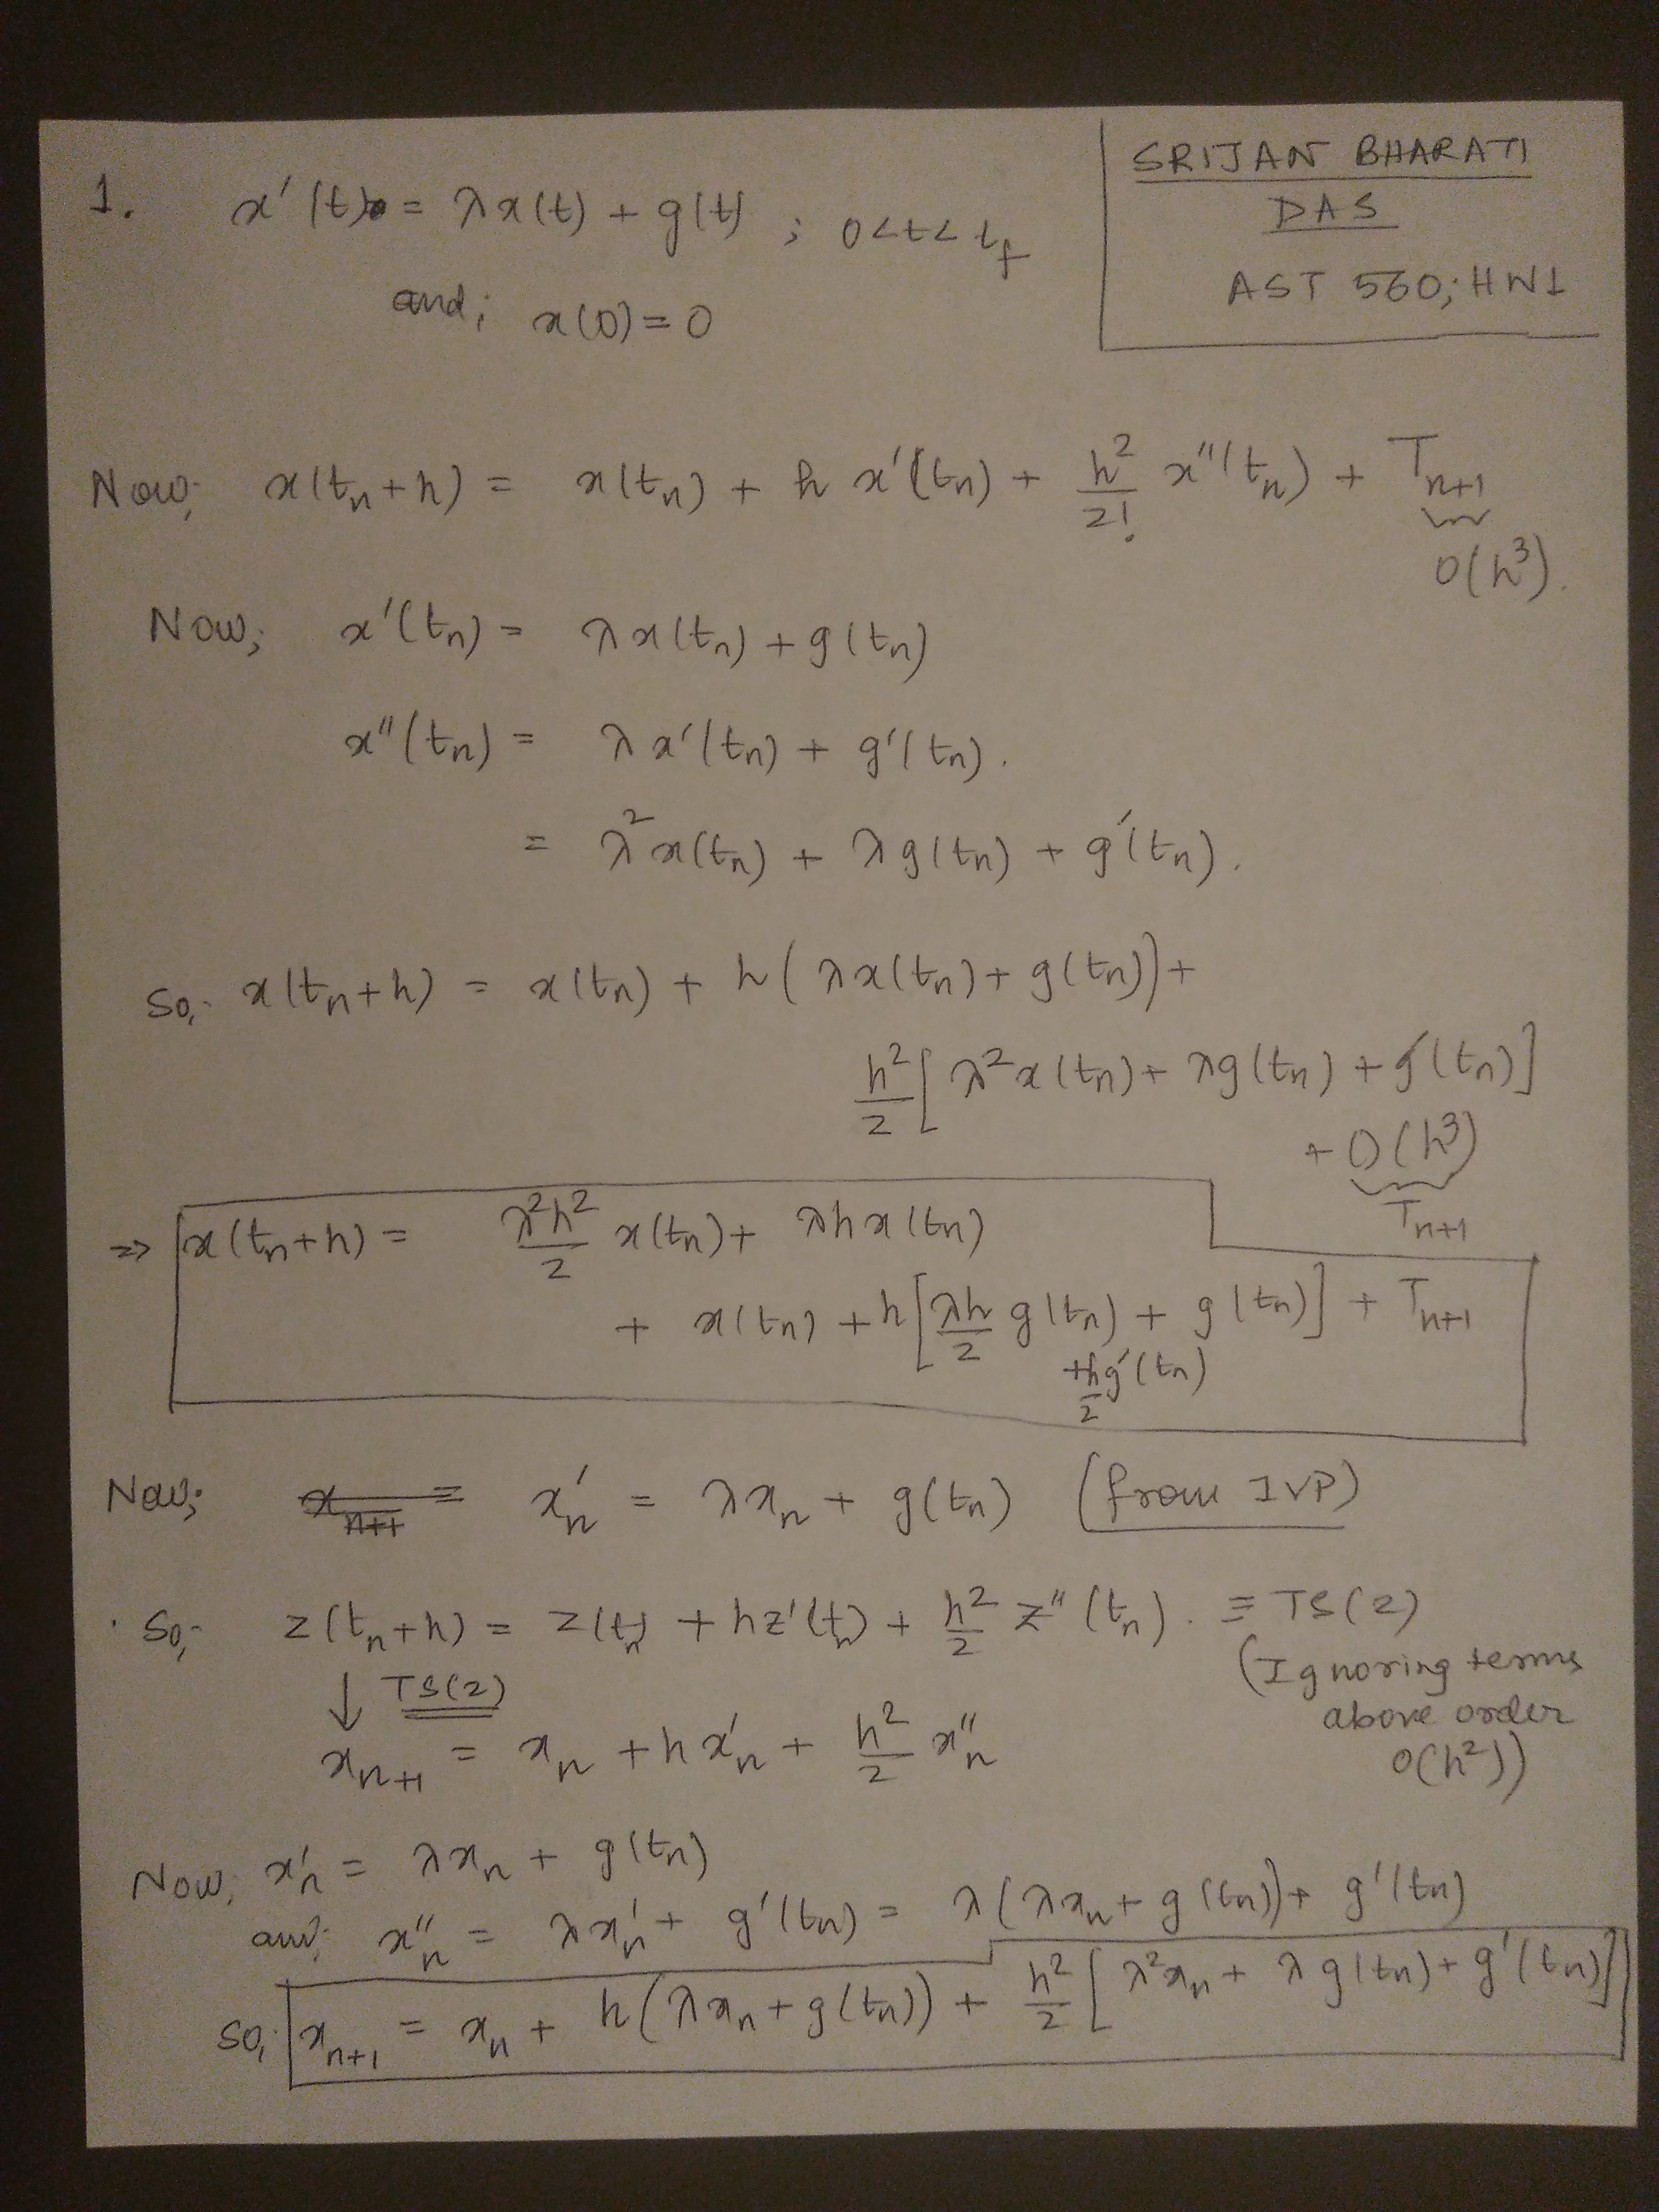 SRIJAN BHARATI
DAS
AST 560; HW1
1. x'(t) = λx(t) + g(t) ; 0<t< t_f
and; x(0) = 0
Now; x(t_n+h) = x(t_n) + h x'(t_n) + h²/2! x''(t_n) + T_{n+1}
O(h³).
Now; x'(t_n) = λx(t_n) + g(t_n)
x''(t_n) = λx'(t_n) + g'(t_n).
= λ²x(t_n) + λg(t_n) + g'(t_n).
So; x(t_n+h) = x(t_n) + h(λx(t_n) + g(t_n)) +
h²/2 [λ²x(t_n) + λg(t_n) + g'(t_n)]
+ O(h³)
T_{n+1}
=> x(t_n+h) = λ²h²/2 x(t_n) + λhx(t_n)
+ x(t_n) + h[λh/2 g(t_n) + g(t_n)] + T_{n+1}
+h/2 g'(t_n)
Now; x_{n+1} = x'_n = λx_n + g(t_n) (from IVP)
So; z(t_n+h) = z(t_n) + hz'(t_n) + h²/2 z''(t_n). ≡ TS(2)
(Ignoring terms
above order
O(h²))
↓ TS(2)
x_{n+1} = x_n + hx'_n + h²/2 x''_n
Now, x'_n = λx_n + g(t_n)
and; x''_n = λx'_n + g'(t_n) = λ(λx_n + g(t_n)) + g'(t_n)
So; x_{n+1} = x_n + h(λx_n + g(t_n)) + h²/2 [λ²x_n + λg(t_n) + g'(t_n)]